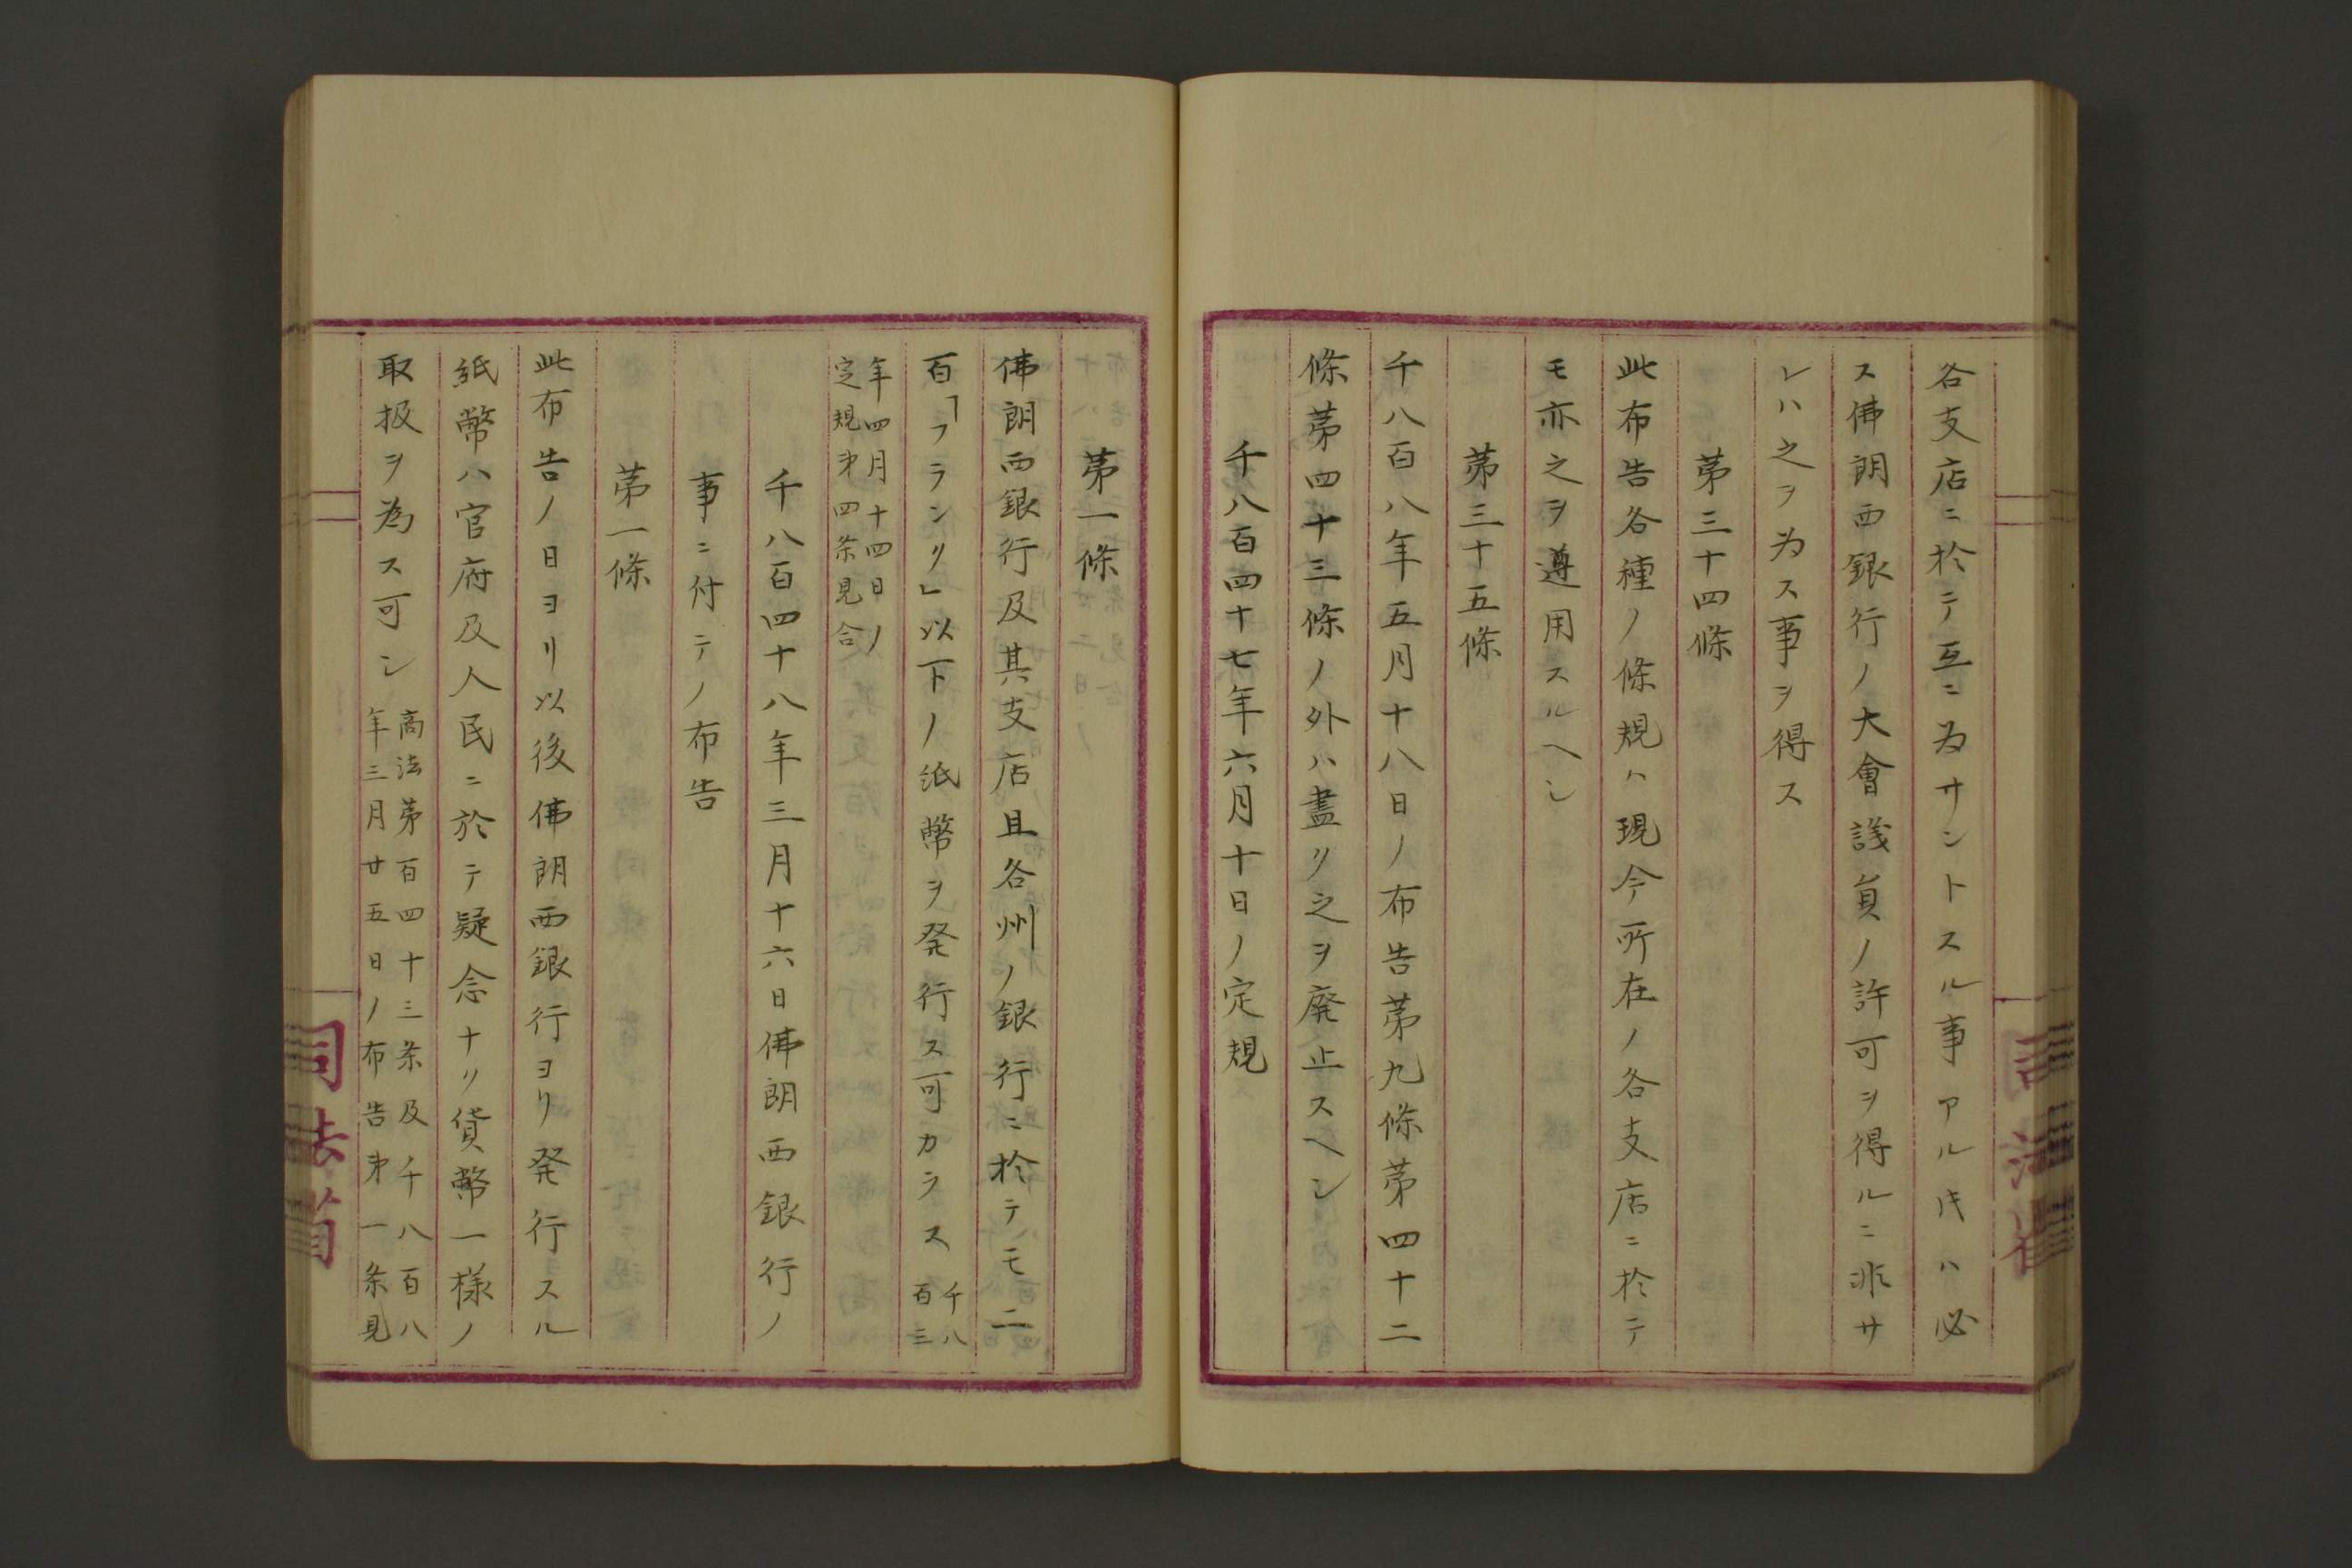 各支店ニ於テ互ニ為サントスル事アル片ハ必
ス佛朗西銀行ノ大會議員ノ許可ヲ得ルニ非サ
レハ之ヲ為ス事ヲ得ス
第三十四條
此布告各種ノ條規ハ現今所在ノ各支店ニ於テ
モ亦之ヲ遵用スルヘシ
第三十五條
千八百八年五月十八日ノ布告第九條第四十二
條第四十三條ノ外ハ盡リ之ヲ廃止スヘシ
千八百四十七年六月十日ノ定規
第一條
佛朗西銀行及其支店且各州ノ銀行ニ於テモ二
百「フランク」以下ノ紙幣ヲ発行ス可カラス千八
百三
年四月十四日ノ
定規第四条見合
千八百四十八年三月十六日佛朗西銀行ノ
事ニ付テノ布告
第一條
此布告ノ日ヨリ以後佛朗西銀行ヨリ発行スル
紙幣ハ官府及人民ニ於テ疑念ナリ貨幣一様ノ
取扱ヲ為ス可シ高法第百四十三条及千八百八
年三月廿五日ノ布告第一条見
司法省